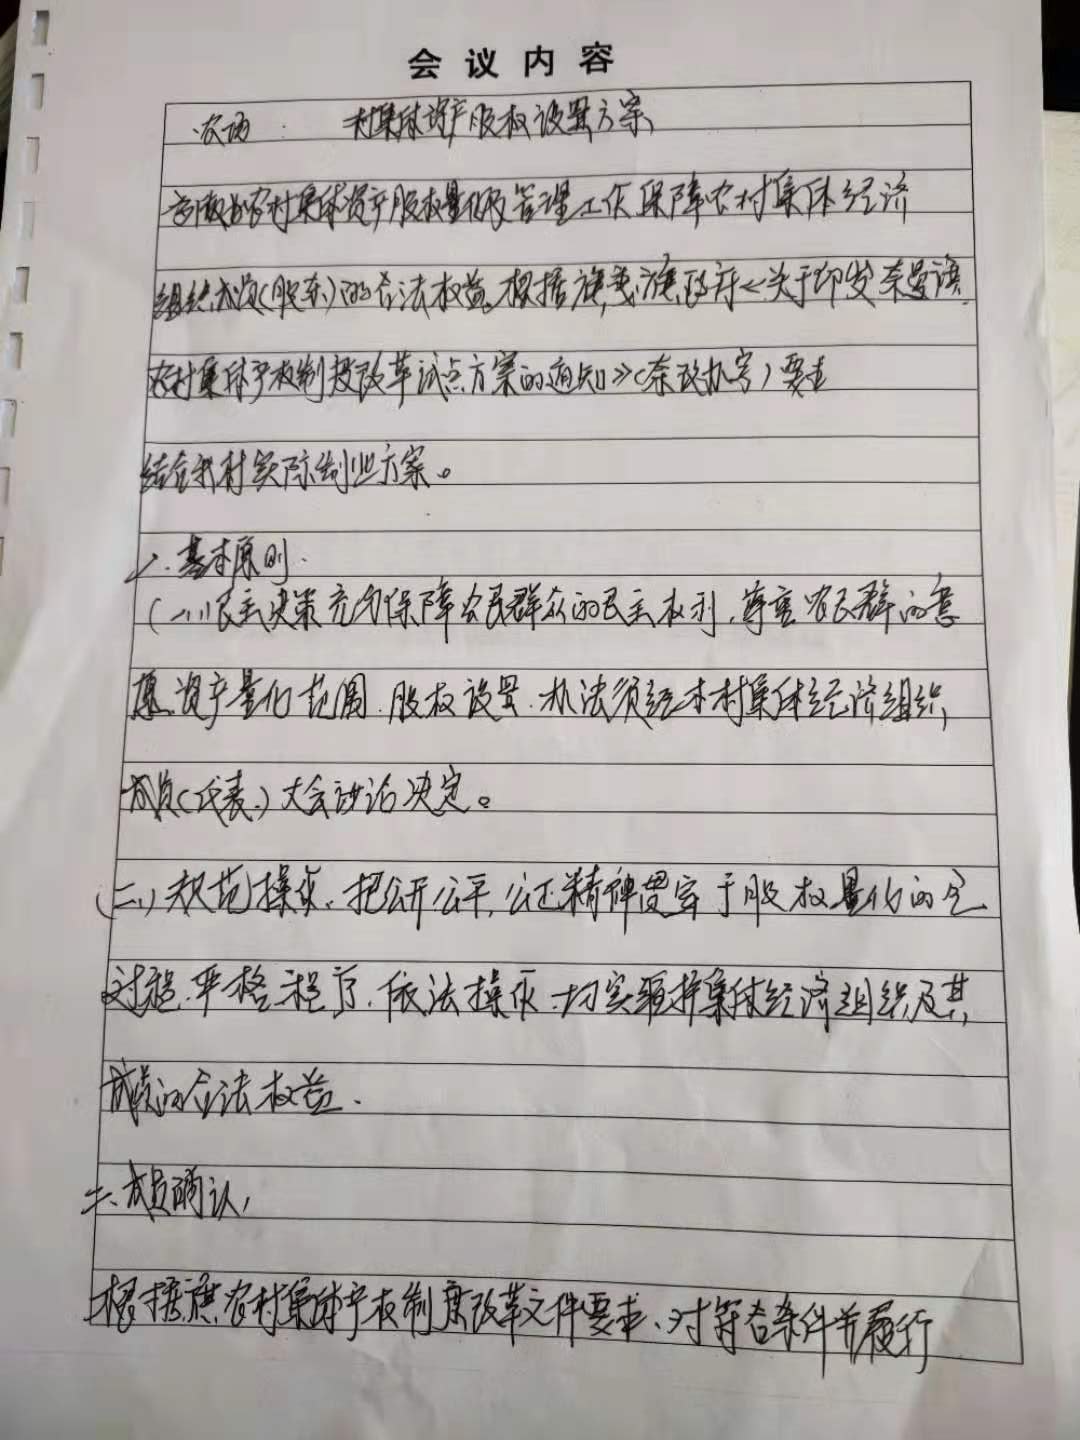 会议内容
村集体资产股权设置方案
农村集体资产股权量化及管理工作保障农村集体经济
组织成员(股东)的合法权益。根据旗委、旗政府《关于印发奈曼旗
农村集体产权制度改革试点方案的通知》(奈政办字)要求
结合我村实际制业方案。
一、基本原则.
(一)民主决策充分保障农民群众的民主权利,尊重农民群的意
愿.资产量化范围.股权设置.办法须经本村集体经济组织
成员(代表)大会讨论决定。
(二)规范操作.把公开公平,公正精神贯穿于股权量化的全
过程.严格程序.依法操作.切实维护集体经济组织及其
成员的合法权益.
二、成员确认,
根据旗农村集体产权制度改革文件要求、对符合条件并履行